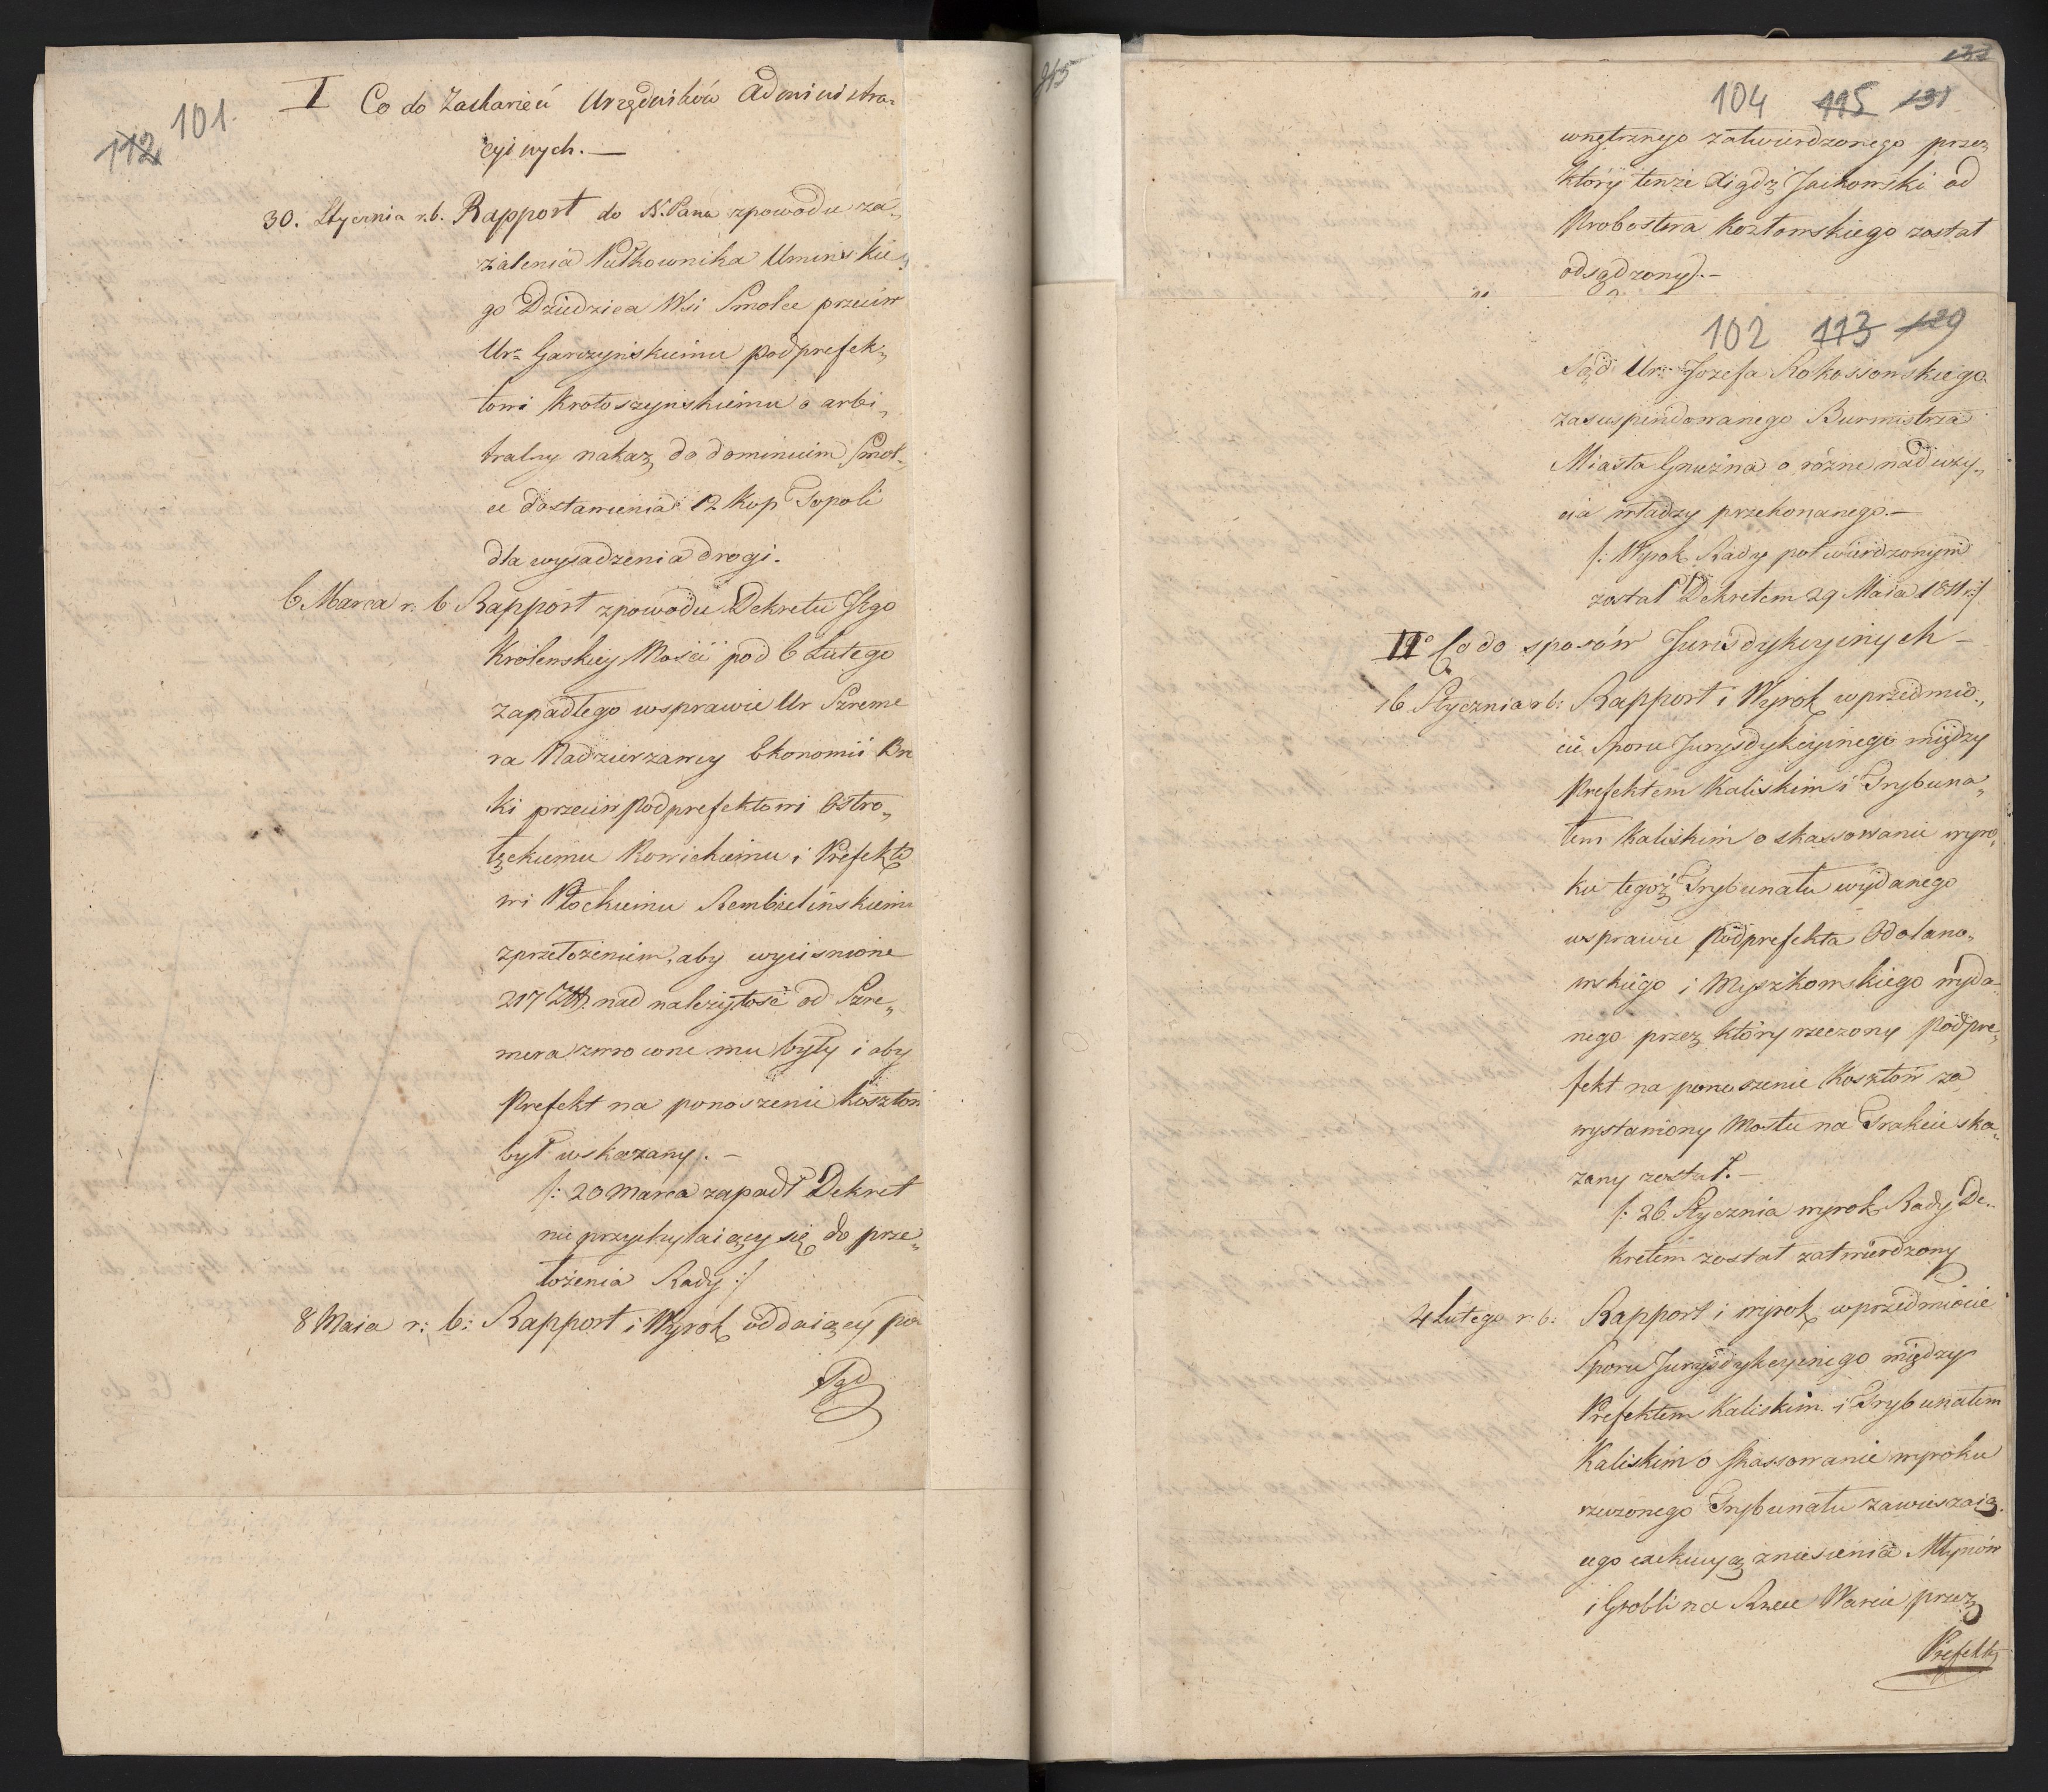 101.
112
I Co do Zaskarżeń Urzędników Administra„
cyinych. —
30. Stycznia r. b. Rapport do N. Pana zpowodu za„
żalenia Pułkownika Uminskie„
go Dziedzica Wsi Smolce przeciw
Urᵒ Garczyńskiemu podprefek„
towi Krotoszyńskiemu o arbi„
tralny nakaz do dominium Smol„
ce dostawienia 12 Kop Topoli
dla wysadzenia drogi.
6 Marca r: b Rapport zpowodu Dekretu JEgo
Królewskiey Mości pod 6 Lutego
zapadłego wsprawie Ur Szreme
ra Nadzierzawcy Ekonomii
ki przeciw Podprefektowi Ostro„
łęckiemu i Prefekto
wi Płockiemu Rembielińskiemu
zprzełożeniem, aby wyciśnione
217 Złł. nad należytość od Szre„
mera zwrocone mu były i aby
Prefekt na ponoszenie Kosztow
był wskazany. —
/: 20 Marca zapadł Dekret
nie przychylaiący się do prze„
łożenia Rady :/
8 Maia r: b: Rapport i Wyrok oddaiący pod
Sąd
115
133
104 115 131
wnętrznego zatwierdzonego przez
który tenże Jaikowski od
Probostwa Kozłowskiego został
odsądzony). —
102 113 129
Sąd Ur: Jozefa Rokossowskiego
zasuspendowanego Burmistrza
Miasta Gniezna o różne naduży„
cia władzy przekonanego. —
/: Wyrok Rady potwierdzonym
został Dekretem 29 Maia 1811 r:/
IIᵒ Co do sporów Jurisdykcyinych —
16. Stycznia r b: Rapport i Wyrok wprzedmio„
cie Sporu Jurysdykcyinego między
Prefektem Kaliskim i Trybuna„
łem Kaliskim o skassowanie wyro„
ku tegoż Trybunału wydanego
wsprawie Podprefekta Odolano„
wskiego i Myszkowskiego wyda„
nego przez który rzeczony Podpre„
fekt na ponoszenie Kosztów za
wystawiony Mostu na Trakcie ska„
zany został. —
/: 26. Stycznia wyrok Rady De„
kretem został zatwierdzony
4 Lutego r: b: Rapport i wyrok wprzedmiocie
Sporu Jurysdykcyinego między
Prefektem Kaliskim i Trybunałem
Kaliskim o skassowanie wyroku
rzeczonego Trybunału zawieszaią„
cego exekucyą zniesienia Młynów
i Grobli na Rzece Warcie przez
Prefekta